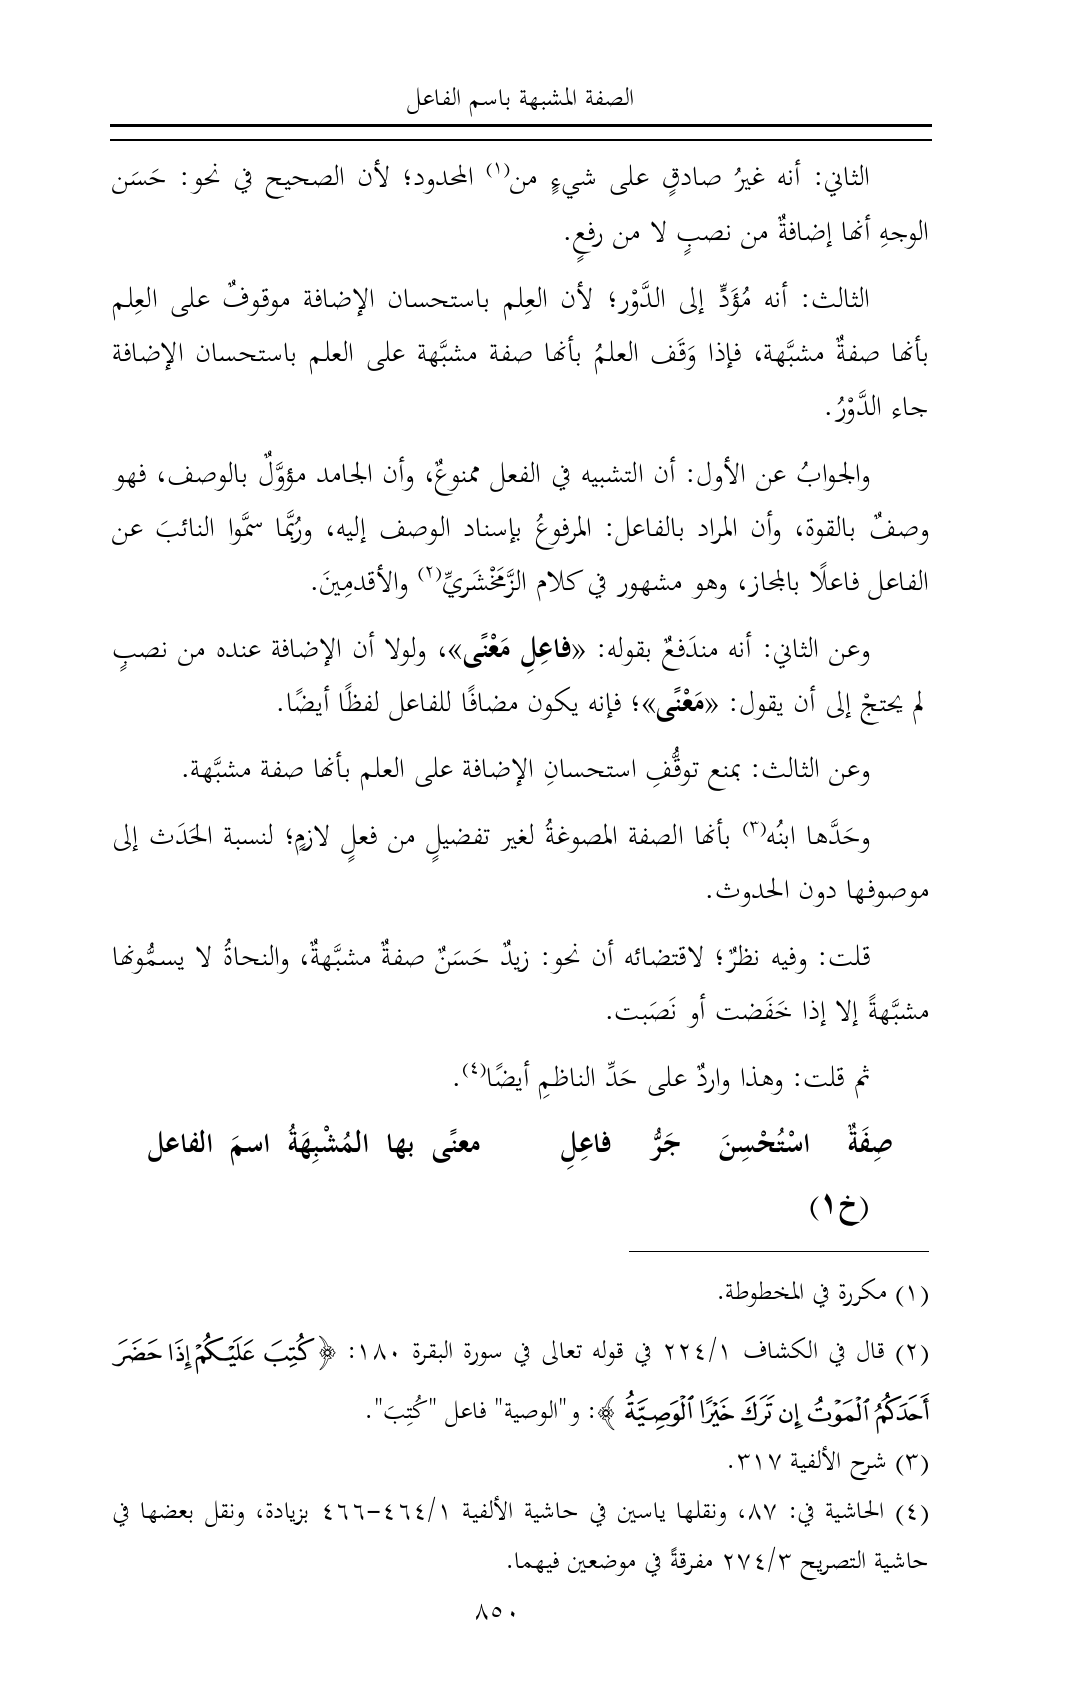 الصفة المشبهة باسم الفاعل
الثاني: أنه غيرُ صادقٍ على شيءٍ من(١) المحدود؛ لأن الصحيح في نحو: حَسَن
الوجهِ أنها إضافةٌ من نصبٍ لا من رفعٍ.
الثالث: أنه مُؤَدٍّ إلى الدَّوْر؛ لأن العِلم باستحسان الإضافة موقوفٌ على العِلم
بأنها صفةٌ مشبَّهة، فإذا وَقَف العلمُ بأنها صفة مشبَّهة على العلم باستحسان الإضافة
جاء الدَّوْرُ.
والجوابُ عن الأول: أن التشبيه في الفعل ممنوعٌ، وأن الجامد مؤوَّلٌ بالوصف، فهو
وصفٌ بالقوة، وأن المراد بالفاعل: المرفوعُ بإسناد الوصف إليه، ورُبَّما سمَّوا النائبَ عن
الفاعل فاعلًا بالمجاز، وهو مشهور في كلام الزَّمَخْشَريِّ(٢) والأقدمِينَ.
وعن الثاني: أنه مندَفعٌ بقوله: «فاعِلِ مَعْنًى»، ولولا أن الإضافة عنده من نصبٍ
لم يحتجْ إلى أن يقول: «مَعْنًى»؛ فإنه يكون مضافًا للفاعل لفظًا أيضًا.
وعن الثالث: بمنع توقُّفِ استحسانِ الإضافة على العلم بأنها صفة مشبَّهة.
وحَدَّها ابنُه(٣) بأنها الصفة المصوغةُ لغير تفضيلٍ من فعلٍ لازمٍ؛ لنسبة الحَدَث إلى
موصوفها دون الحدوث.
قلت: وفيه نظرٌ؛ لاقتضائه أن نحو: زيدٌ حَسَنٌ صفةٌ مشبَّهةٌ، والنحاةُ لا يسمُّونها
مشبَّهةً إلا إذا خَفَضت أو نَصَبت.
ثم قلت: وهذا واردٌ على حَدِّ الناظمِ أيضًا(٤).
صِفَةٌ اسْتُحْسِنَ جَرُّ فاعِلِ معنًى بها المُشْبِهَةُ اسمَ الفاعل
(خ١)
(١) مكررة في المخطوطة.
(٢) قال في الكشاف ٢٢٤/١ في قوله تعالى في سورة البقرة ١٨٠: ﴿كُتِبَ عَلَيْكُمْ إِذَا حَضَرَ
أَحَدَكُمُ ٱلْمَوْتُ إِن تَرَكَ خَيْرًا ٱلْوَصِيَّةُ﴾: و"الوصية" فاعل "كُتِبَ".
(٣) شرح الألفية ٣١٧.
(٤) الحاشية في: ٨٧، ونقلها ياسين في حاشية الألفية ٤٦٤/١-٤٦٦ بزيادة، ونقل بعضها في
حاشية التصريح ٢٧٤/٣ مفرقةً في موضعين فيهما.
٨٥٠